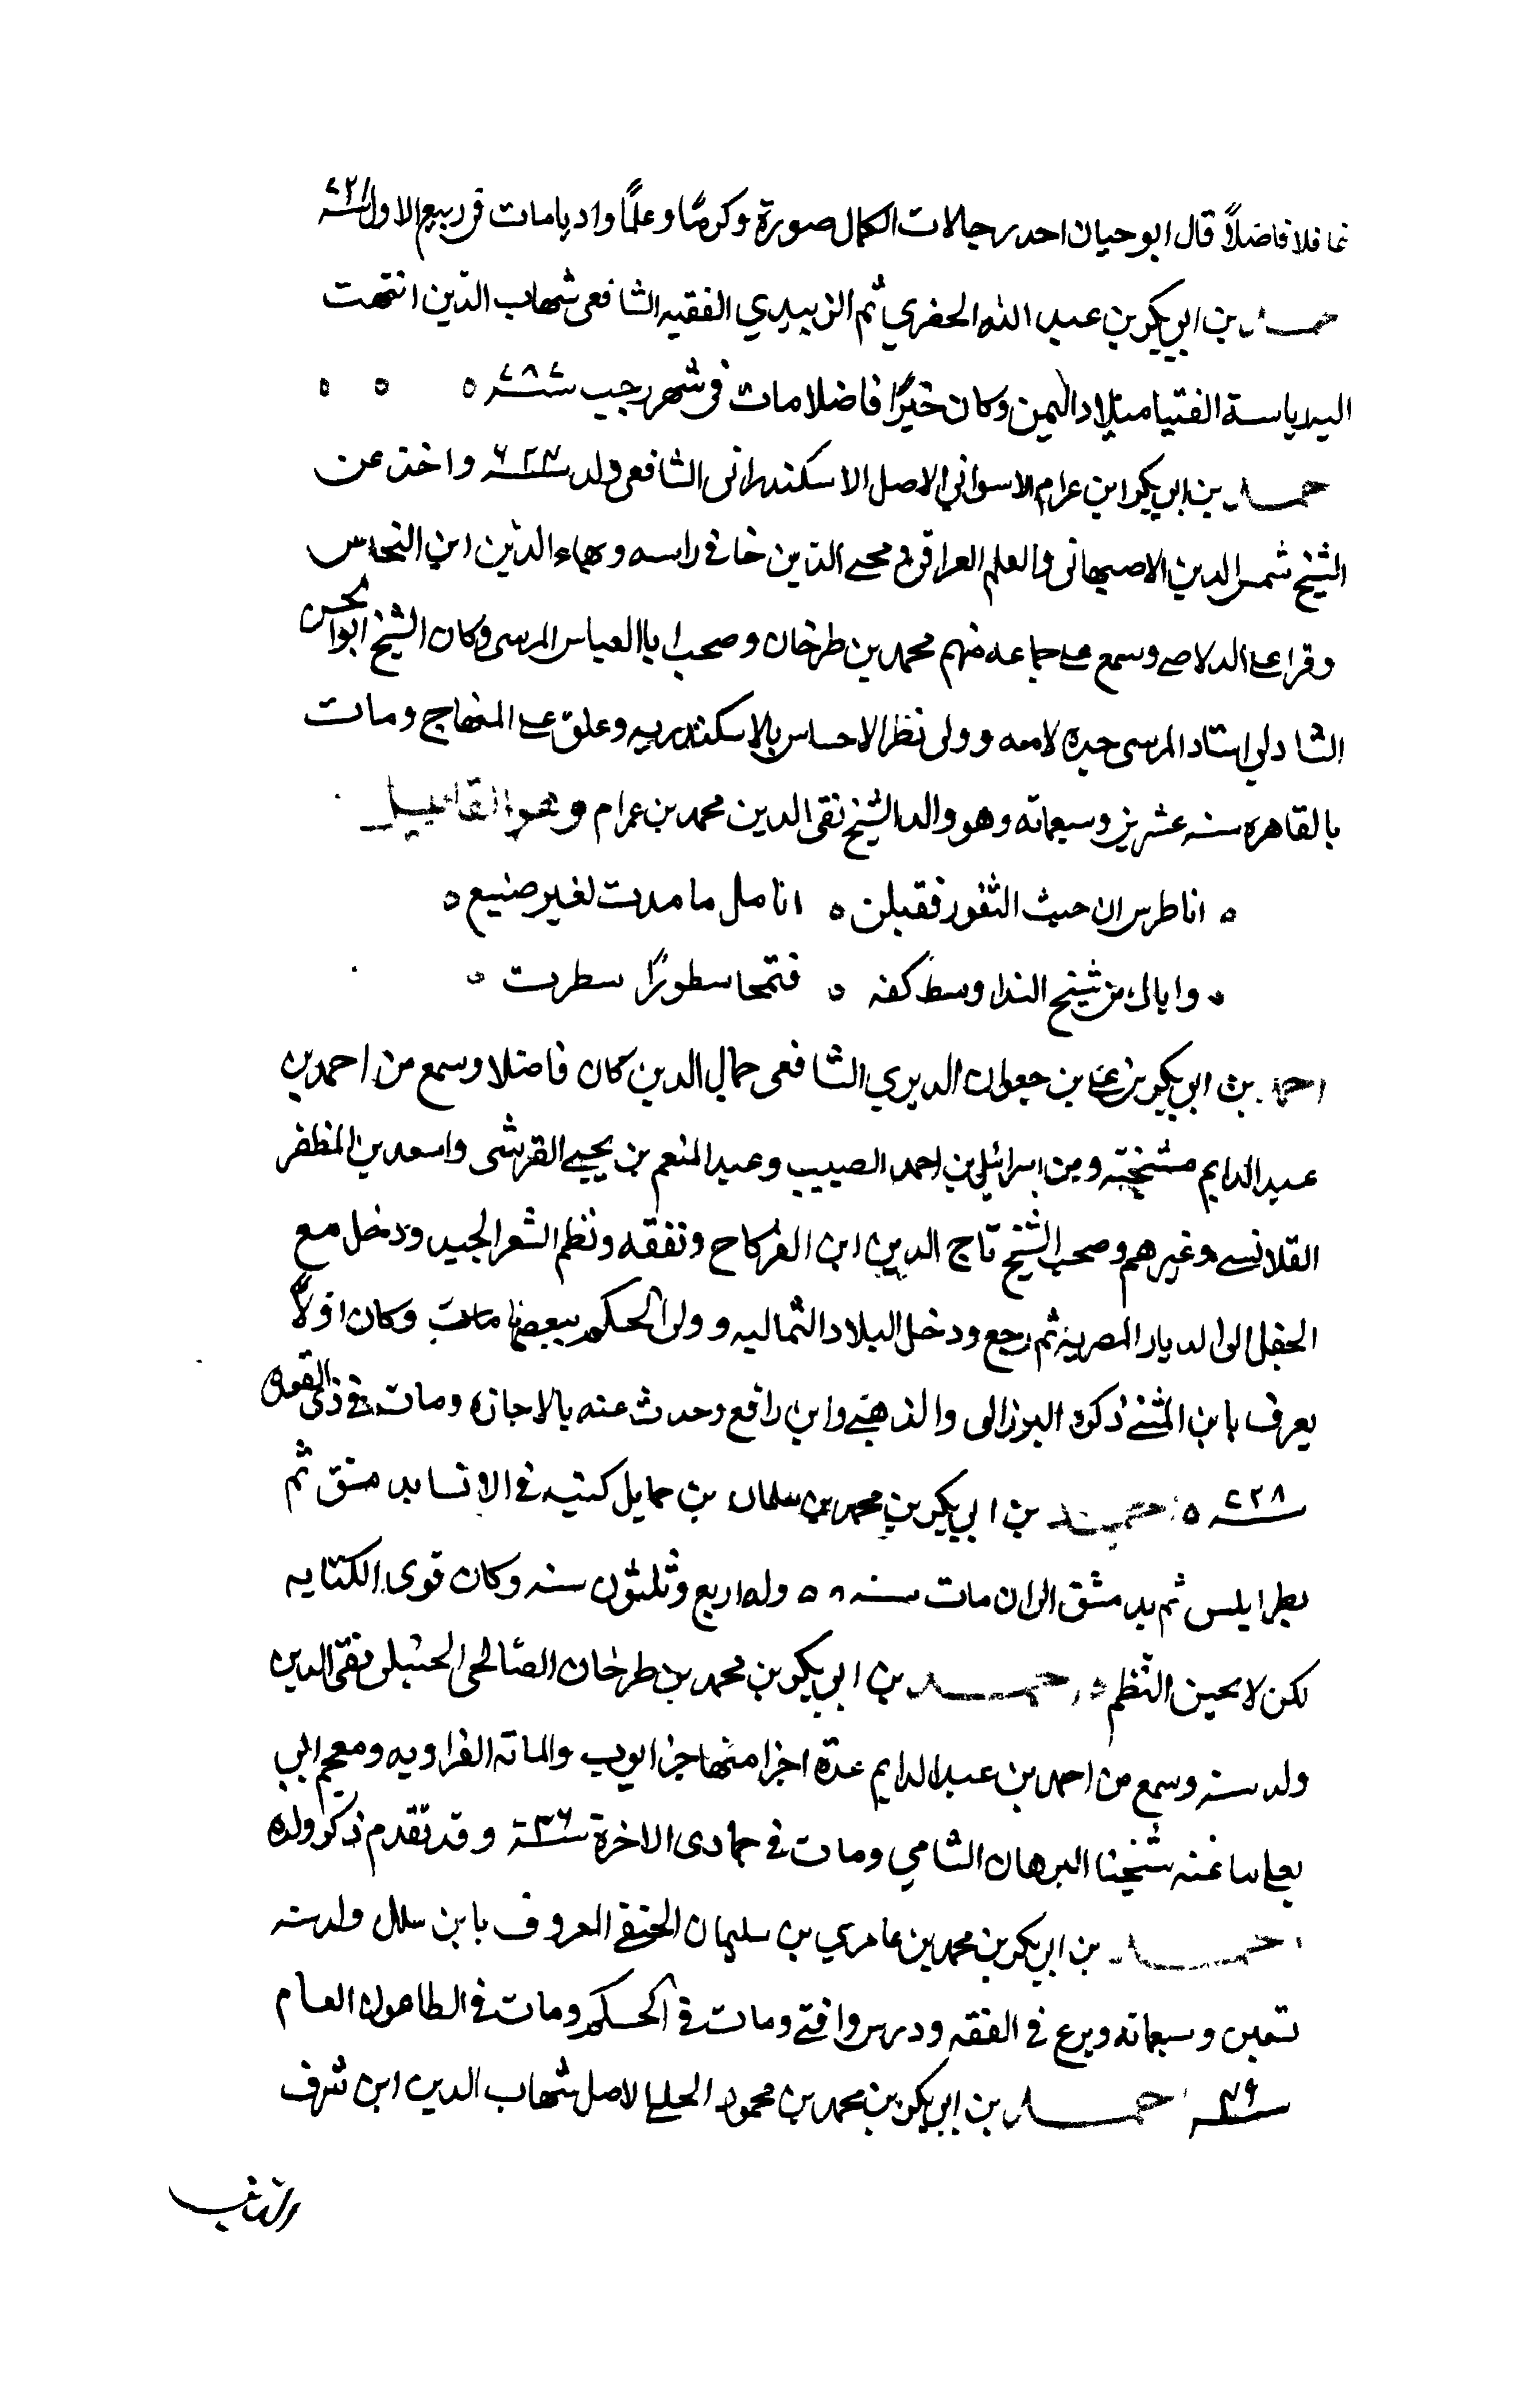 عاقلا فاضلاً قال ابو حيان احد رجالات الكمال صورة وكرمًا وعلمًا وادبا مات فى ربيع الاول سنة ٧٢١
حمد بن ابى بكر بن عبد الله الحضري ثم الزبيدي الفقيه الشافعى شهاب الدين انتهت
اليه رياسة الفتيا ببلاد اليمن وكان خيرًا فاضلا مات فى شهر رجب سنة ٧٨٧
حمد بن ابى بكر ابن عرام الاسواني الاصل الاسكندرانى الشافعى ولد سنة واخذ عن
الشيخ شمس الدين الاصبهانى والعلم العراقى و محيى الدين حافى راسه و بهاء الدين ابن النحاس
وقرا على الدلاصى وسمع على جماعه منهم محمد بن طرخان وصحب ابا العباس المرسى وكان الشيخ ابو الحسن
الشادلي استاد المرسى جده لامه وولى نظر الاحباس بالاسكندريه وعلق على المنهاج ومات
بالقاهره سنه عشرين وسبعماته وهو والد الشيخ تقى الدين محمد بن عرام وهو القائل
اناطرس ان جيت الثغور فقبلن انامل ما مدت لغير صنيع
واياك من شيخ الندا وسط كفه فتمحا سطورًا سطرت
احمد بن ابى بكر بن على بن جعوان الديري الشافعى جمال الدين كان فاضلا وسمع من احمد بن
عبد الدايم مشيخته ومن اسرائيل بن احمد الصبيب وعبد المنعم بن يحيى القرشى واسعد بن المظفر
القلانسى وغيرهم وصحب الشيخ تاج الدين ابن الفركاح وتفقه ونظم الشعر الجيد ودخل مع
الجفل الى الديار المصرية ثم رجع ودخل البلاد الشماليه وولى الحكم ببعضها مات وكان اولًا
يعرف بابن المثنى ذكره البرزالى والذهبى وابن رافع وحدث عنه بالاجازه ومات فى ذى القعده
سنه ٧٢٨ حمد بن ابى بكر بن محمد بن سلمان بن حمايل كتب فى الانشا بدمشق ثم
بطرابلس ثم بدمشق الى ان مات سنه وله اربع وثلثون سنه وكان قوى الكتابه
لكن لا يحسن النظم احمد بن ابى بكر بن محمد بن طرخان الصالحى الحنبلى تقى الدين
ولد سنه وسمع من احمد بن عبد الدايم عدة اجزا منها جزا ايوب والماته الفراويه ومعجم ابى
يعلى منا عنه شيخنا البرهان الشامي ومات فى جمادى الاخرة سنة ٧٣٦ وقد تقدم ذكر ولده
احمد بن ابى بكر بن محمد بن عامري بن سليمان الحنفى المعروف بابن سلال ولد سنه
تسعين وسبعماته وبرع فى الفقه ودرس وافتى ومات فى الحكم ومات فى الطاعون العام
سنه ٧٤٩ حمد بن ابى بكر بن محمد بن محمود الحلبى الاصل شهاب الدين ابن شرف